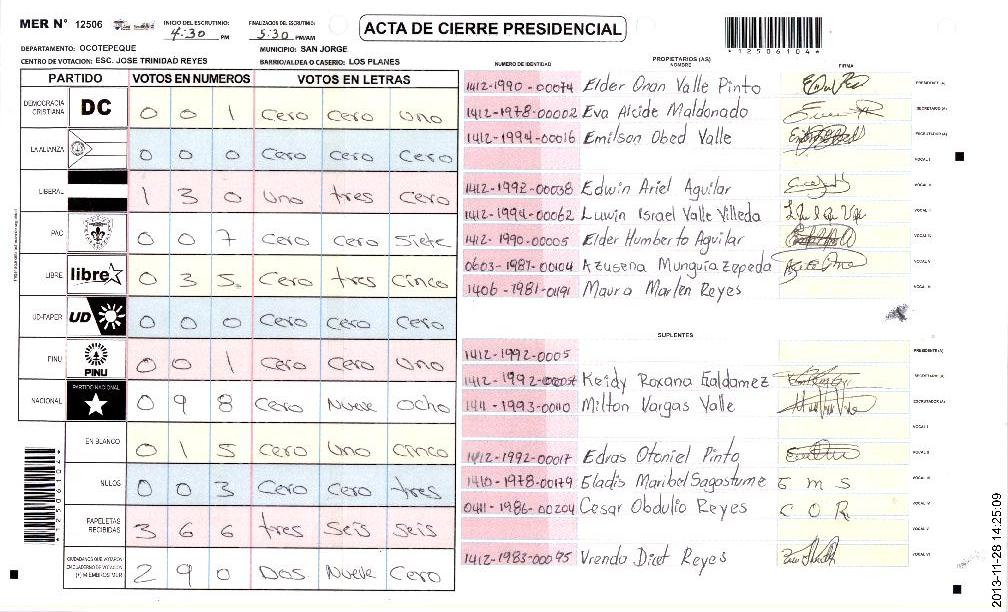 MER N° 12506
INICIO DEL ESCRUTINIO: 4:30 PM
FINALIZACION DEL ESCRUTINIO: 5:30 PM/AM
ACTA DE CIERRE PRESIDENCIAL
*12506104*
DEPARTAMENTO: OCOTEPEQUE
MUNICIPIO: SAN JORGE
CENTRO DE VOTACION: ESC. JOSE TRINIDAD REYES
BARRIO/ALDEA O CASERIO: LOS PLANES
PARTIDO VOTOS EN NUMEROS VOTOS EN LETRAS
DEMOCRACIA CRISTIANA DC 0 0 1 Cero Cero Uno
LA ALIANZA 0 0 0 Cero Cero Cero
LIBERAL 1 3 0 Uno tres Cero
PAC 0 0 7 Cero Cero Siete
LIBRE libre 0 3 5 Cero tres Cinco
UD-FAPER UD 0 0 0 Cero Cero Cero
PINU PINU 0 0 1 Cero Cero Uno
NACIONAL PARTIDO NACIONAL 0 9 8 Cero Nueve Ocho
EN BLANCO 0 1 5 Cero Uno Cinco
NULOS 0 0 3 Cero Cero tres
PAPELETAS RECIBIDAS 3 6 6 tres Seis Seis
CIUDADANOS QUE VOTARON EN CUADERNO DE VOTACION (+) MIEMBROS MER 2 9 0 Dos Nueve Cero
*12506104*
NUMERO DE IDENTIDAD
PROPIETARIOS (AS)
NOMBRE
FIRMA
1412-1990-00074 Elder Onan Valle Pinto PRESIDENTE (A)
1412-1978-00002 Eva Alcide Maldonado SECRETARIO (A)
1412-1994-00016 Emilson Obed Valle ESCRUTADOR (A)
VOCAL I
1412-1992-00038 Edwin Ariel Aguilar VOCAL II
1412-1994-00062 Luwin Israel Valle Villeda
1412-1990-00005 Elder Humberto Aguilar VOCAL IV
0603-1987-00104 Azusena Munguia Zepeda VOCAL V
1406-1981-01191 Maura Marlen Reyes VOCAL VI
SUPLENTES
1412-1992-0005 PRESIDENTE (A)
Keidy Roxana Galdamez SECRETARIO (A)
Milton Vargas Valle ESCRUTADOR (A)
VOCAL I
1412-1992-00017 Edras Otoniel Pinto VOCAL II
1410-1978-00179 Eladis Maribel Sagostume E M S VOCAL III
0411-1986-00204 Cesar Obdulio Reyes C O R VOCAL IV
VOCAL V
1412-1983-00095 Vrenda Dict Reyes VOCAL VI
2013-11-28 14:25:09